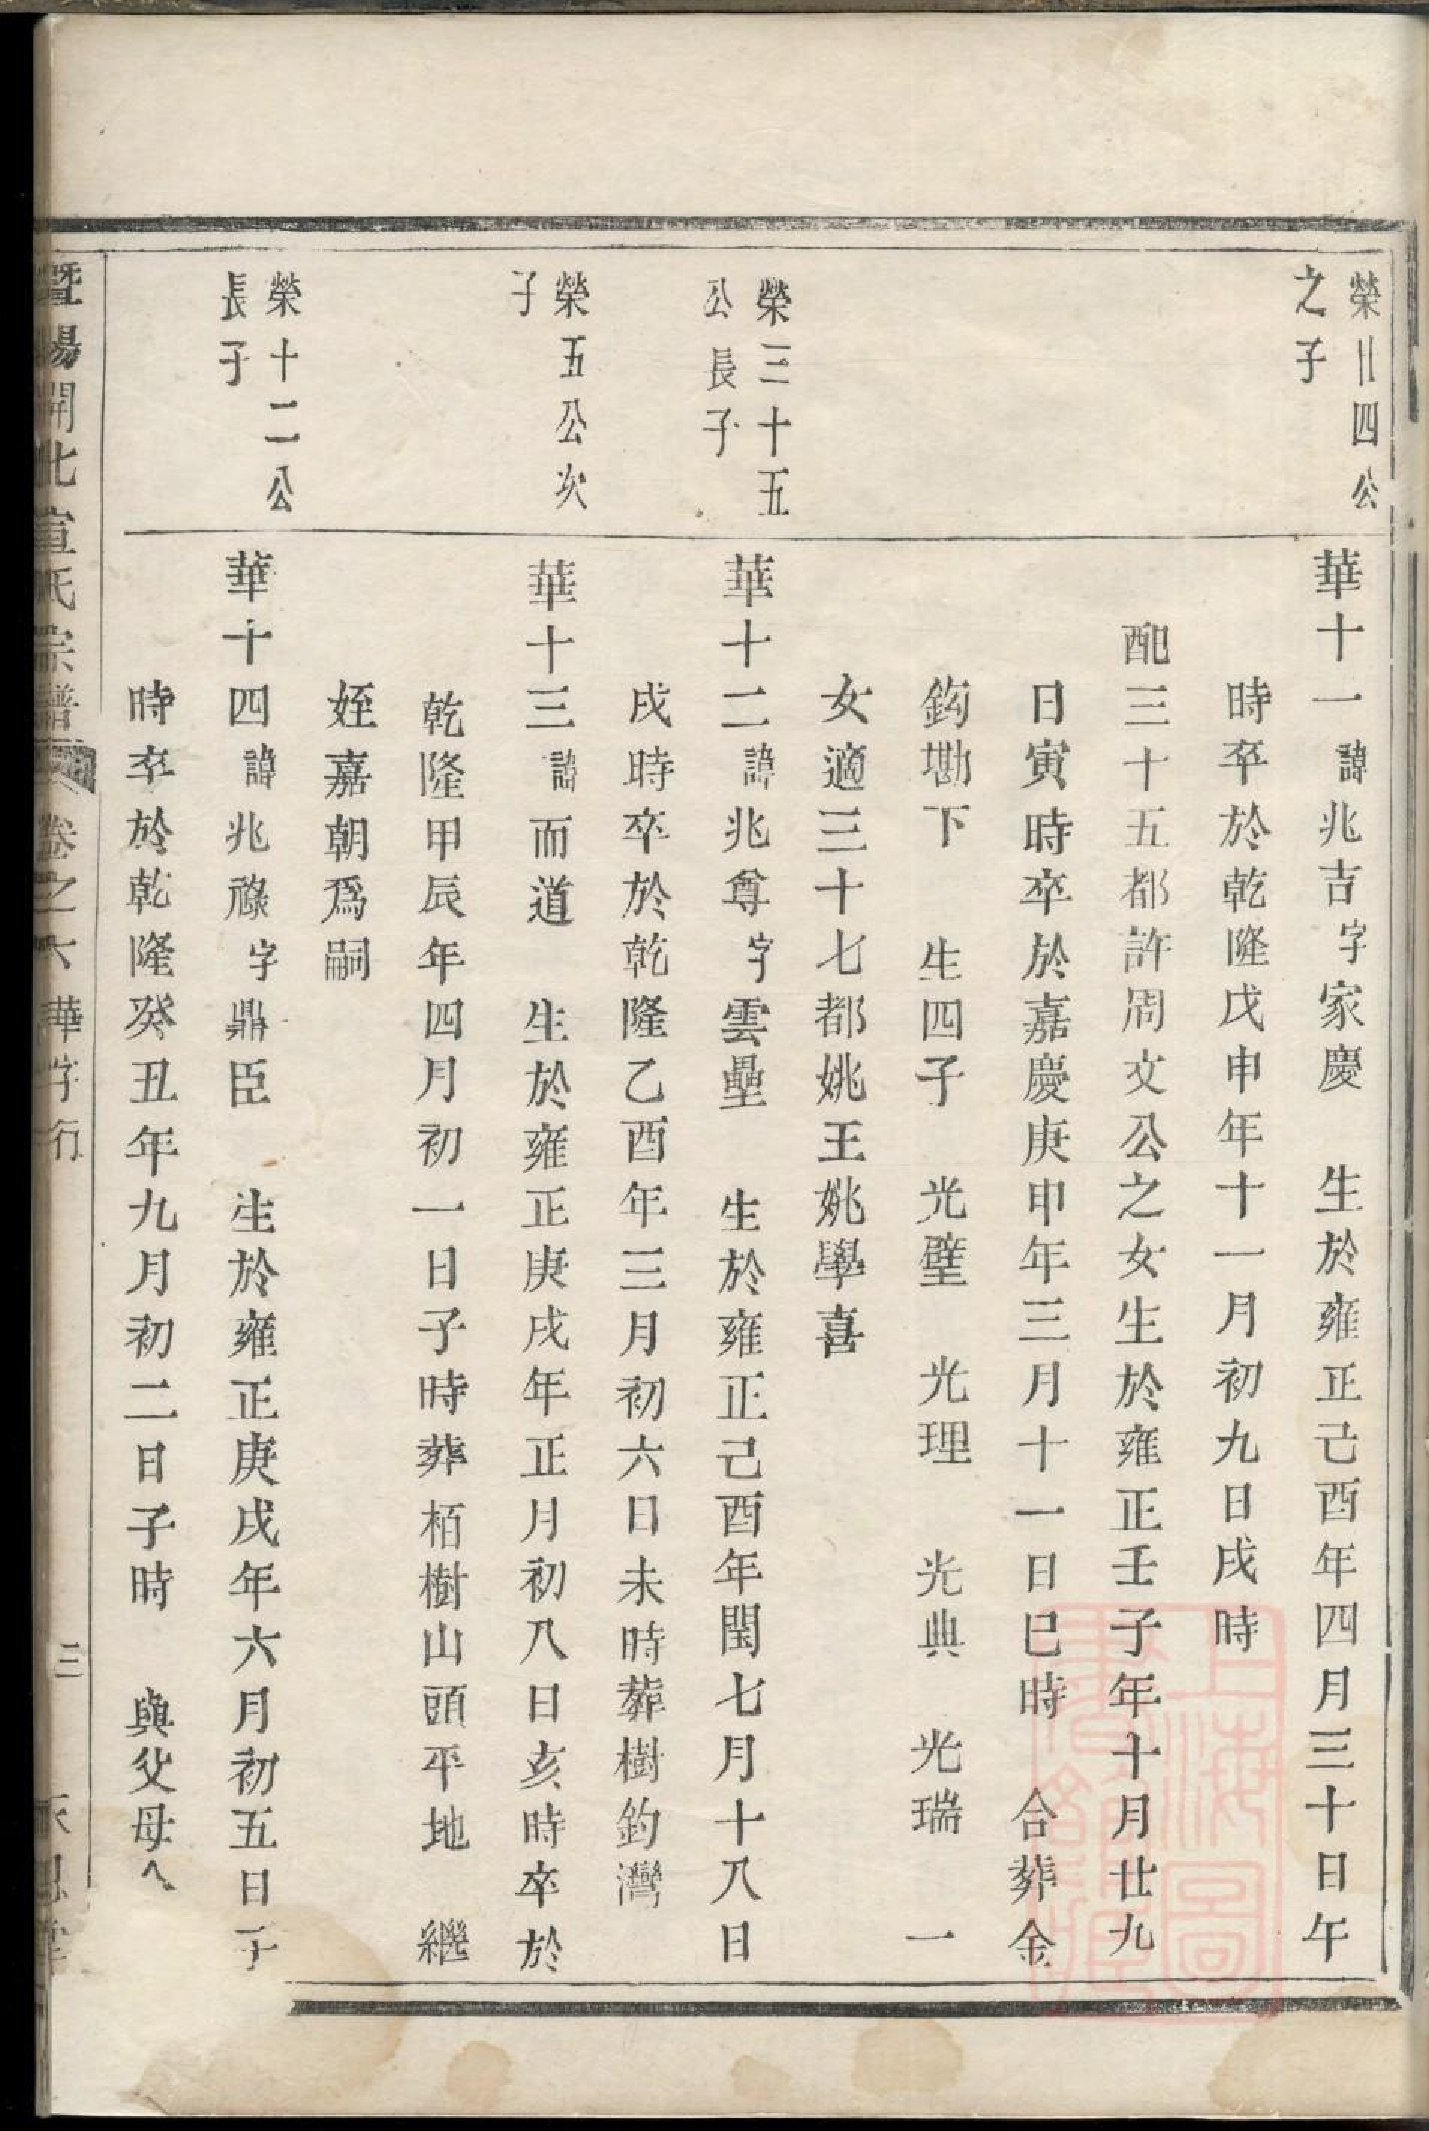 榮廿四公
之子
華十一諱兆吉字家慶　生於雍正己酉年四月三十日午
時卒於乾隆戊申年十一月初九日戌時
配三十五都許周文公之女生於雍正壬子年十月廿九
日寅時卒於嘉慶庚申年三月十一日巳時　合葬金
鈎墈下　生四子　光璧　光理　光典　光瑞　一
女適三十七都姚王姚學喜
榮三十五
公長子
華十二諱兆尊字雲壘　生於雍正己酉年閏七月十八日
戌時卒於乾隆乙酉年三月初六日未時葬樹鈞灣
榮五公次
子
華十三諱而道　生於雍正庚戌年正月初八日亥時卒於
乾隆甲辰年四月初一日子時葬栢樹山頭平地　繼
姪嘉朝爲嗣
榮十二公
長子
華十四諱兆祿字鼎臣　生於雍正庚戌年六月初五日子
時卒於乾隆癸丑年九月初二日子時　與父母
暨陽開化宣氏宗譜　卷之六華字行　三
上海圖書館藏